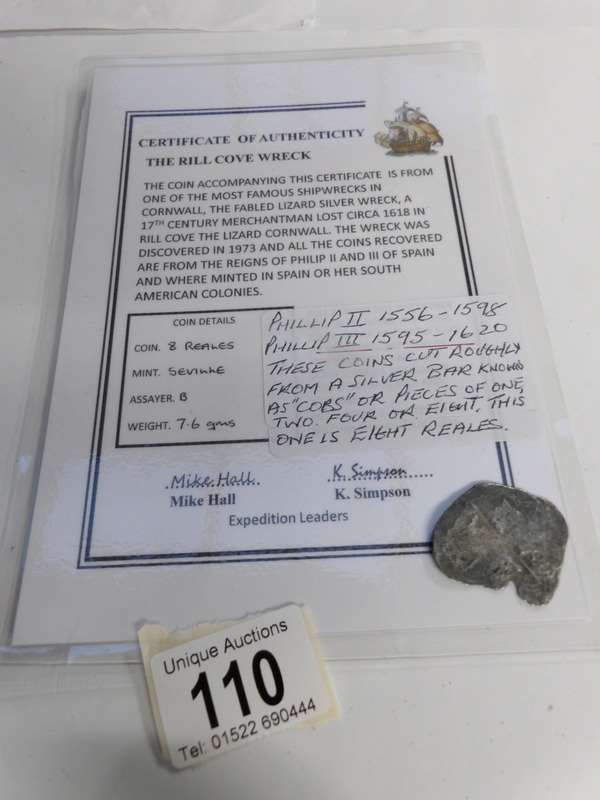 CERTIFICATE OF AUTHENTICITY
THE RILL COVE WRECK
THE COIN ACCOMPANYING THIS CERTIFICATE IS FROM
ONE OF THE MOST FAMOUS SHIPWRECKS IN
CORNWALL, THE FABLED LIZARD SILVER WRECK, A
17TH CENTURY MERCHANTMAN LOST CIRCA 1618 IN
RILL COVE THE LIZARD CORNWALL. THE WRECK WAS
DISCOVERED IN 1973 AND ALL THE COINS RECOVERED
ARE FROM THE REIGNS OF PHILIP II AND III OF SPAIN
AND WHERE MINTED IN SPAIN OR HER SOUTH
AMERICAN COLONIES.
COIN DETAILS
COIN. 8 REALES
MINT. SEVILLE
ASSAYER. B
WEIGHT. 7.6 gms
PHILLIP II 1556-1598
PHILLIP III 1595-1620
THESE COINS CUT ROUGHLY
FROM A SILVER BAR KNOWN
AS "COBS" OR PIECES OF ONE,
TWO. FOUR OR EIGHT. THIS
ONE IS EIGHT REALES.
Mike Hall
Mike Hall
K. Simpson
K. Simpson
Expedition Leaders
Unique Auctions
110
Tel: 01522 690444